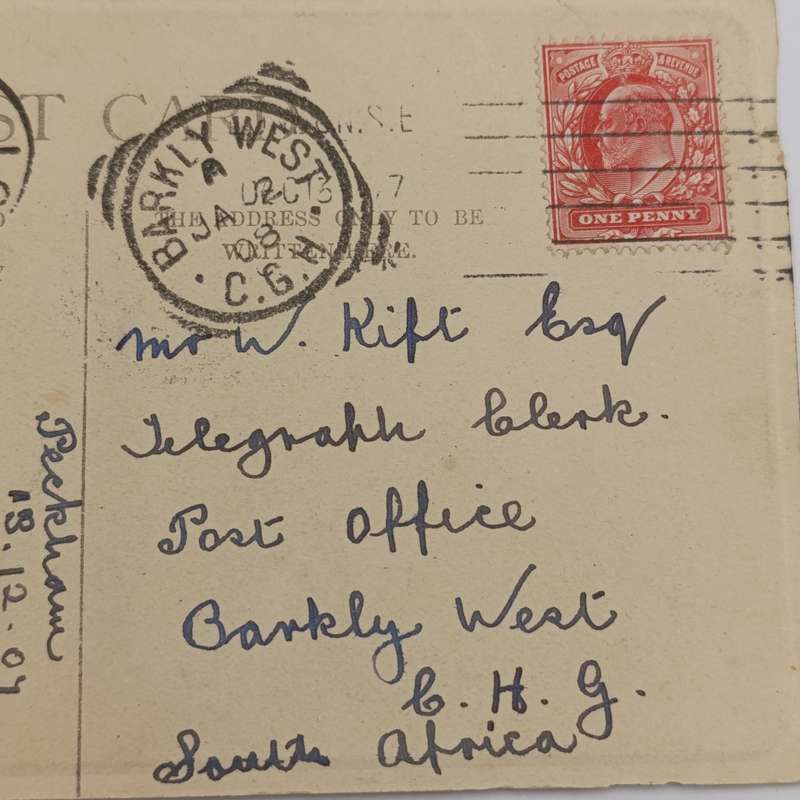 POST CARD
POSTAGE & REVENUE
ONE PENNY
N.S.E
DEC 13 7
BARKLY WEST
A
JA 2
08
C.G.H
THE ADDRESS ONLY TO BE
WRITTEN HERE.
Mr W. Kift Esq
Telegraph Clerk.
Post Office
Barkly West
C. H. G.
South Africa
Peckham
13.12.07